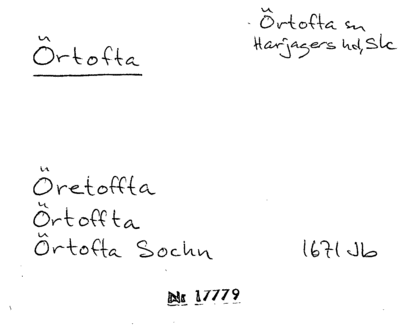 Örtofta
Örtofta sn
Harjagers hd, Sk
Öretoffta
Örtoffta
Örtofta Sochn 1671 Jb
Nr 17779